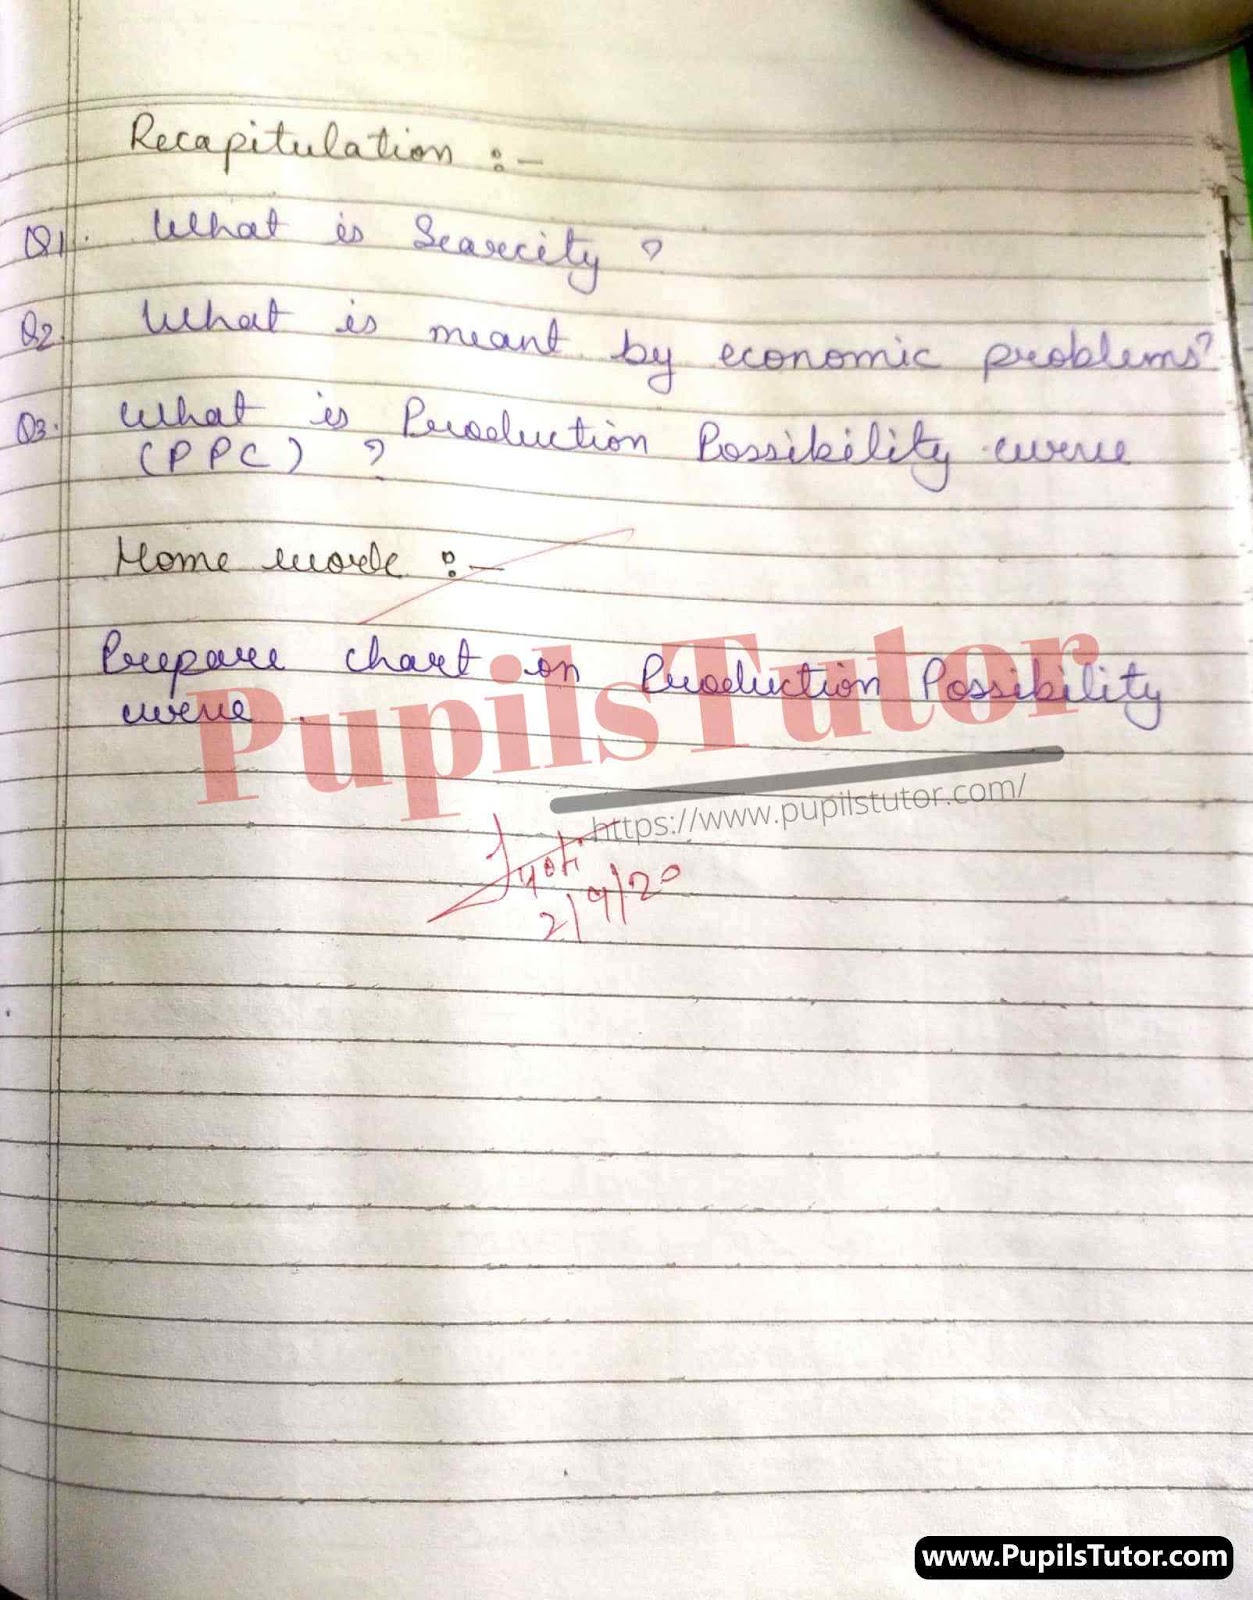 Recapitulation :-
Q1. What is Scarcity ?
Q2. What is meant by economic problems?
Q3. What is Production Possibility curve
(PPC) ?
Home work :-
Prepare chart on Production Possibility
curve
PupilsTutor
https://www.pupilstutor.com/
Jyoti
2/9/20
www.PupilsTutor.com